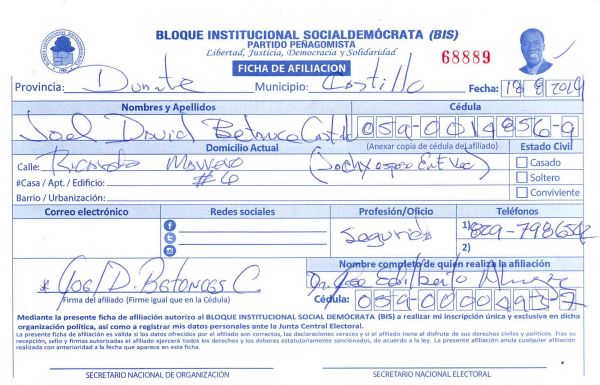 BLOQUE INSTITUCIONAL SOCIALDEMÓCRATA (BIS)
PARTIDO PEÑAGOMISTA
Libertad, Justicia, Democracia y Solidaridad
68889
FICHA DE AFILIACION
Provincia: Duarte Municipio: Castillo Fecha: 18 8 2019
Nombres y Apellidos Cédula
Joel David 059-0014856-9
Domicilio Actual (Anexar copia de cédula del afiliado) Estado Civil
Calle: Ricardo Casado
#Casa / Apt. / Edificio: #6 Soltero
Barrio / Urbanización: Conviviente
Correo electrónico Redes sociales Profesión/Oficio Teléfonos
Seguridad 1) 829-798
2)
Nombre completo de quién realiza la afiliación
* Joel D. C Dr. Jose Edilberto
Firma del afiliado (Firme igual que en la Cédula) Cédula: 059-0000
Mediante la presente ficha de afiliación autorizo al BLOQUE INSTITUCIONAL SOCIAL DEMÓCRATA (BIS) a realizar mi inscripción única y exclusiva en dicha
organización política, así como a registrar mis datos personales ante la Junta Central Electoral.
La presente ficha de afiliación es válida si los datos ofrecidos por el afiliado son correctos, las declaraciones veraces y si el afiliado tiene el disfrute de sus derechos civiles y políticos. Tras su
recepción, sello y firmas autorizadas el afiliado ejercerá todos los derechos y los deberes estatutariamente sancionados, de acuerdo a la ley. La presente afiliación anula cualquier afiliación
realizada con anterioridad a la fecha que aparece en esta ficha.
SECRETARIO NACIONAL DE ORGANIZACIÓN SECRETARIO NACIONAL ELECTORAL